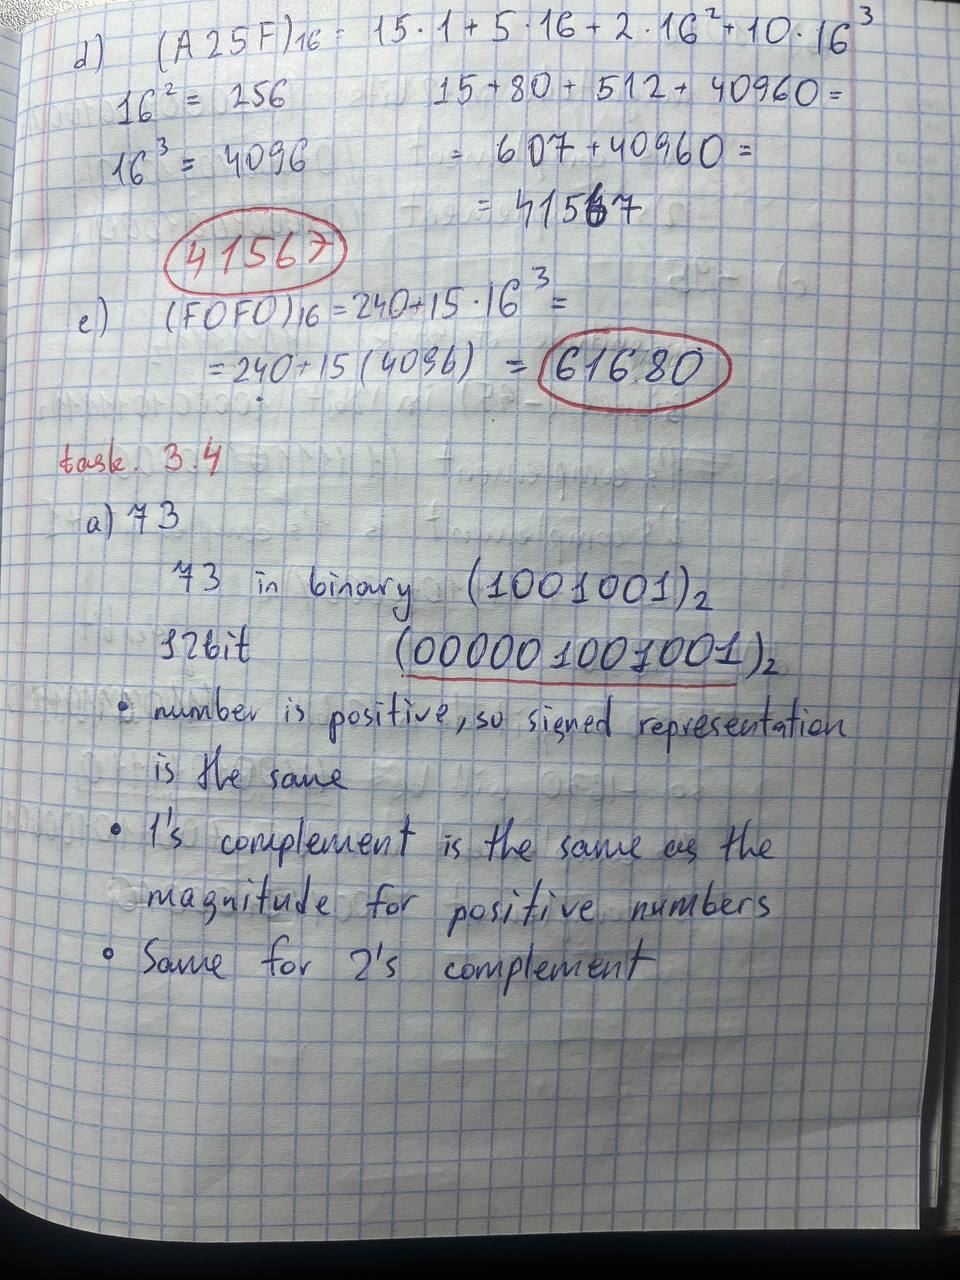 d) (A25F)16 = 15·1 + 5·16 + 2·16² + 10·16³
16² = 256 15 + 80 + 512 + 40960 =
16³ = 4096 = 607 + 40960 =
= 41567
41567
e) (F0F0)16 = 240 + 15·16³ =
= 240 + 15(4096) = 61680
task. 3.4
a) 73
73 in binary (1001001)2
12bit (000001001001)2
• number is positive, so signed representation
is the same
• 1's complement is the same as the
magnitude for positive numbers
• Same for 2's complement